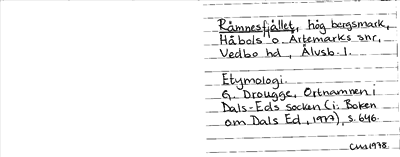 Råmnesfjället, hög bergsmark,
Håbols o. Ärtemarks snr,
Vedbo hd, Älvsb. l.
Etymologi.
G. Drougge, Ortnamnen i
Dals-Eds socken (i: Boken
om Dals Ed, 1977), s. 646.
1978.